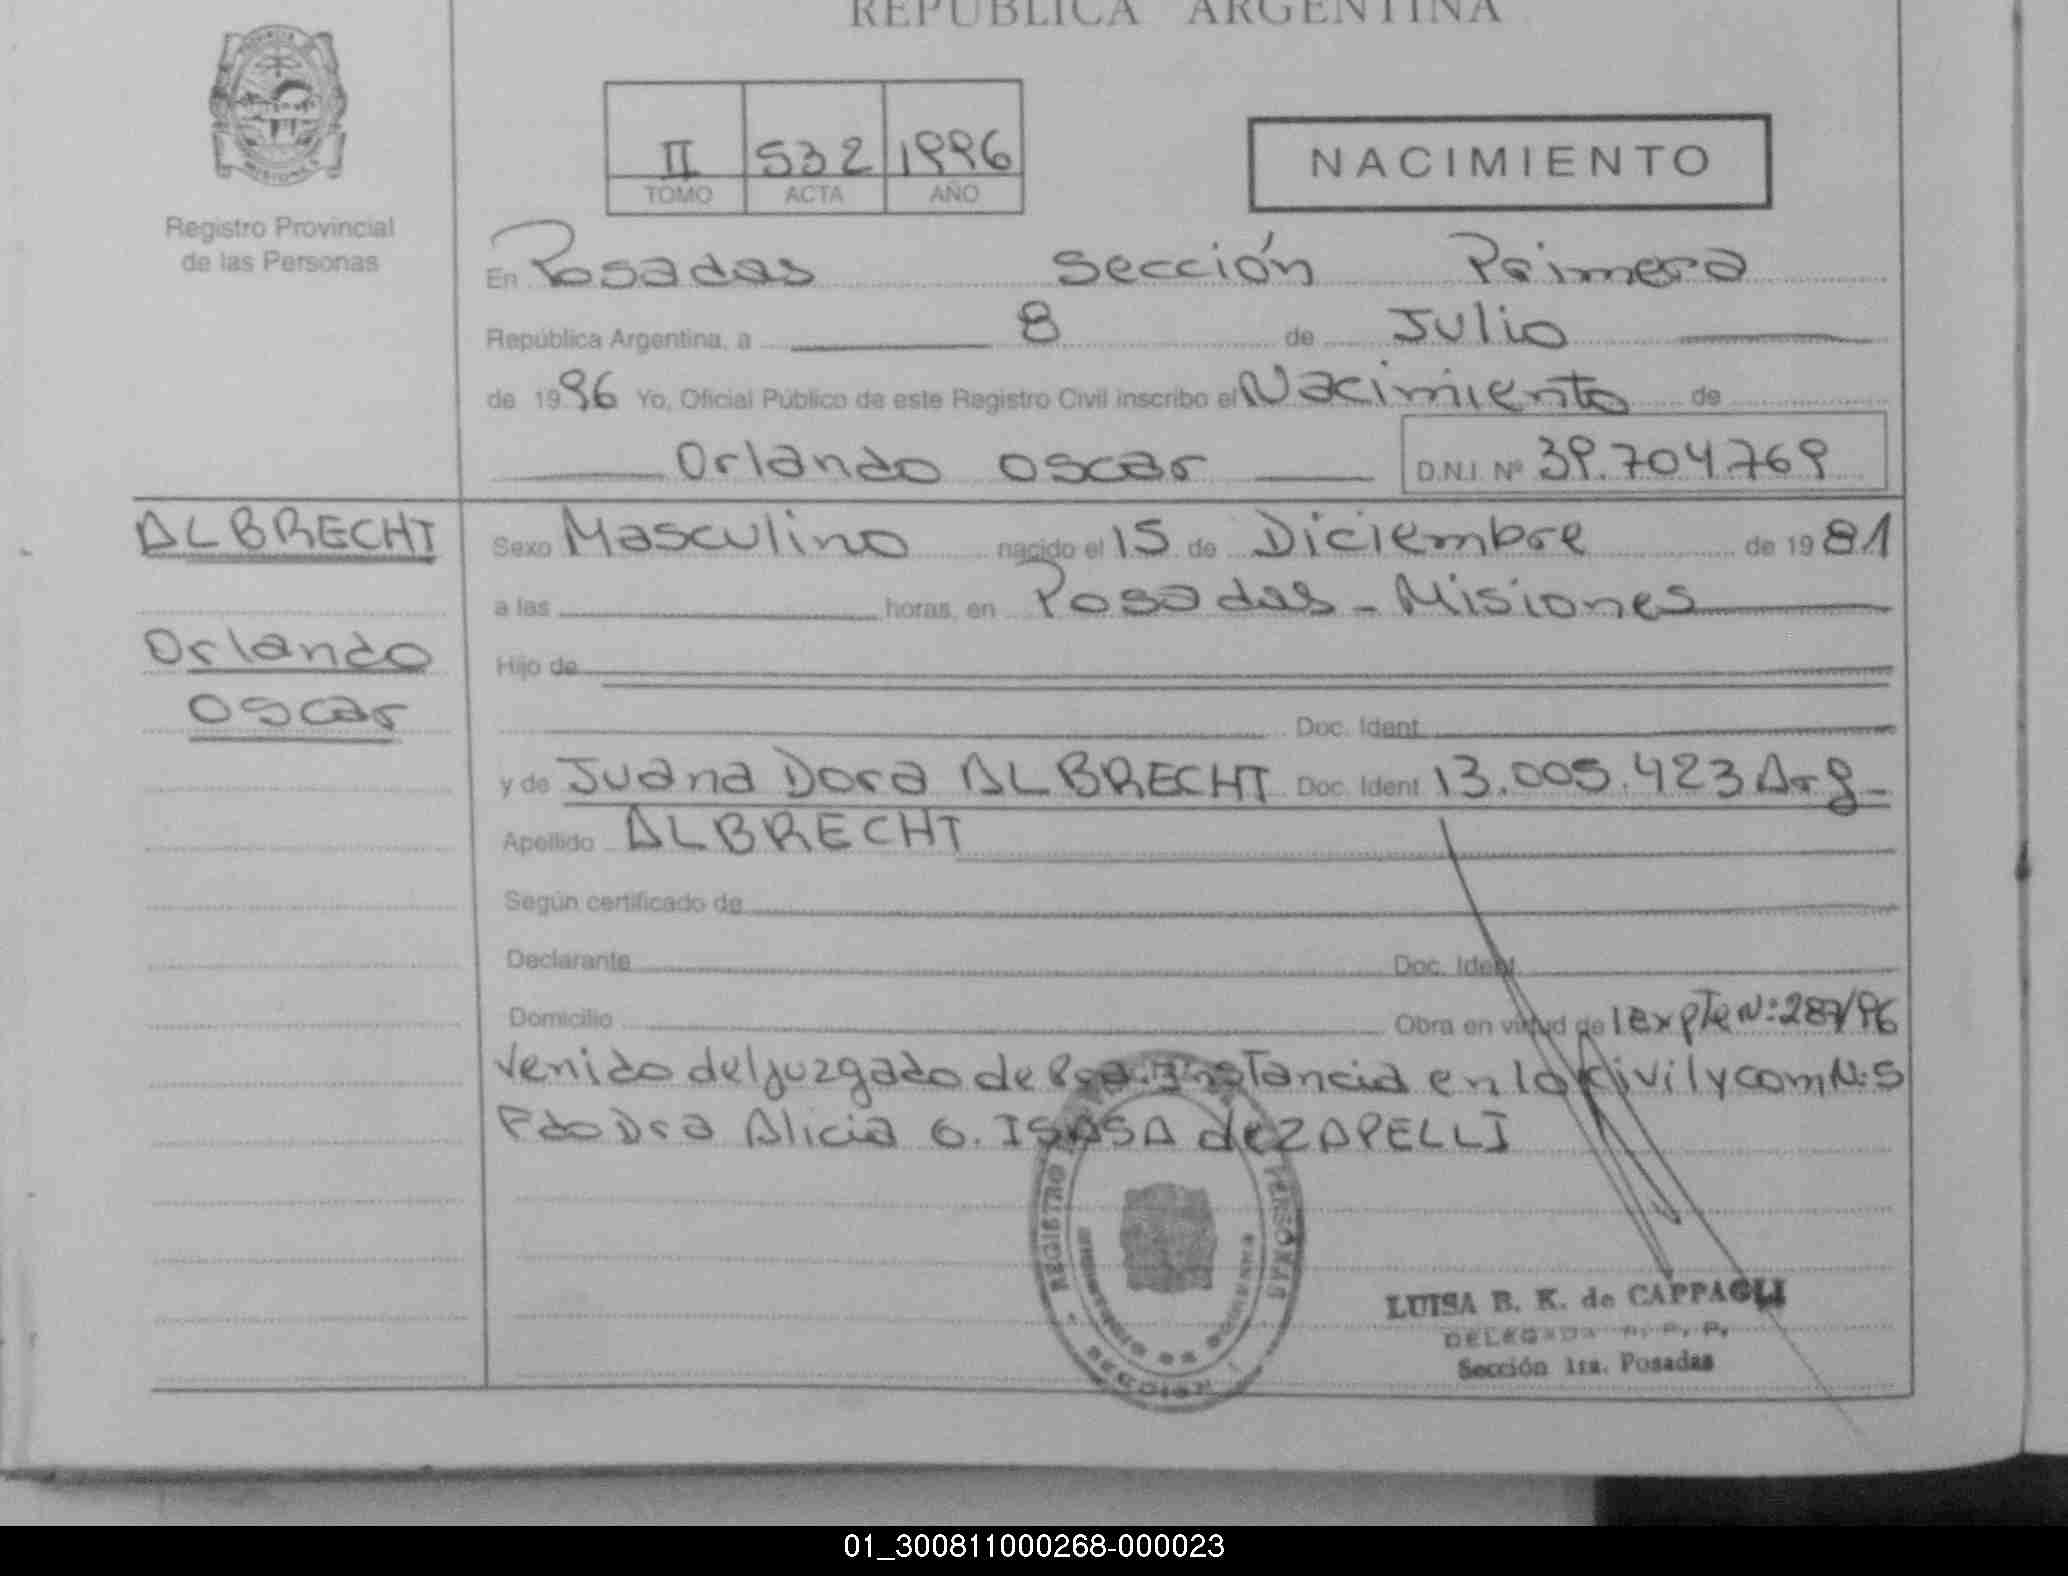 REPUBLICA ARGENTINA
II 532 1996
TOMO ACTA AÑO
NACIMIENTO
Registro Provincial
de las Personas
En Posadas Sección Primera
República Argentina, a 8 de Julio
de 1996 Yo, Oficial Público de este Registro Civil inscribo el Nacimiento de
Orlando Oscar D.N.I. Nº 39.704.769
ALBRECHT
Orlando
Oscar
Sexo Masculino nacido el 15 de Diciembre de 1981
a las horas, en Posadas - Misiones
Hijo de
Doc. Ident
y de Juana Dora ALBRECHT Doc. Ident 13.005.423 Arg.
Apellido ALBRECHT
Según certificado de
Declarante Doc. Ident
Domicilio Obra en virtud de l Expte N: 287/96
venido del juzgado de Pra. Instancia en lo Civil y com N: 5
Fdo Dra Alicia G. ISASA de ZAPELLI
REGISTRO PERSONAS
LUISA B. K. de CAPPAGLI
DELEGADA R. P. P.
Sección 1ra. Posadas
01_300811000268-000023